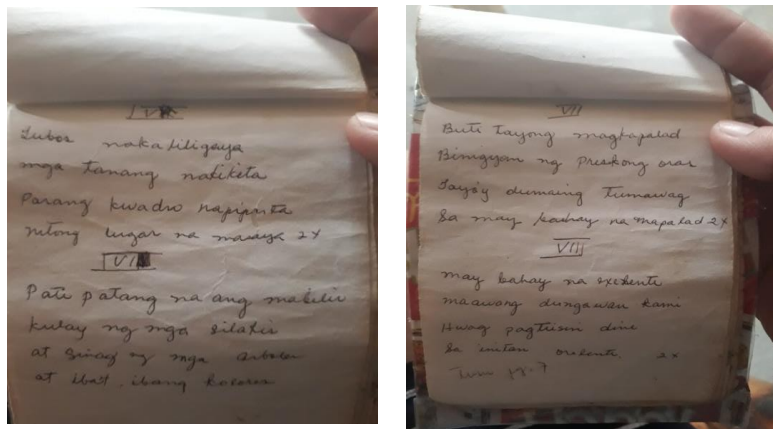 V
Lubos nakaliligaya
mga tanang nakikita
Parang kwadro napipinta
nitong lugar na masaya 2x
VI
Pati patang na ang makikir
kulay ng mga silahis
at sinag ng mga
at ibat, ibang kolores
VII
Buti tayong magkapalad
Binigyan ng preskong oras
Tayo'y dumaing tumawag
Sa may bahay na mapalad 2x
VII
may bahay na exelente
maawang dungawan kami
Huwag pagtiisin dine
Sa initan 2x
Turn pg. 7